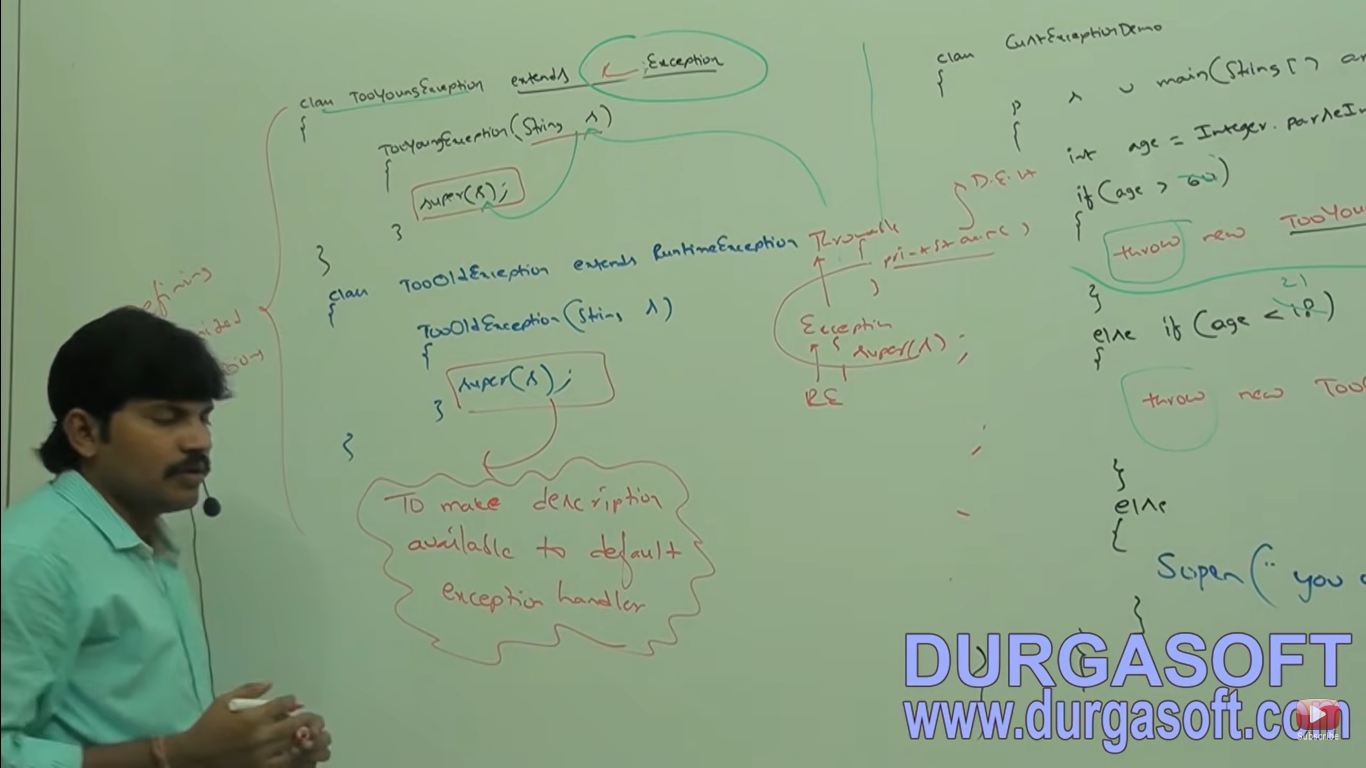 class TooYoungException extends Exception
{
TooYoungException(String s)
{
super(s);
}
}
class TooOldException extends RuntimeException
{
TooOldException(String s)
{
super(s);
}
}
To make description
available to default
exception handler
efining
Throwable
{
)
D.E.H
Exception
{ super(s);
RE
class CustExceptionDemo
{
p s v main(String[]
{
int age = Integer.parseIn
if(age > 60)
{
throw new TooYou
}
21
else if (age < 18)
{
throw new Too
}
else
{
Sopen(" you
}
}
DURGASOFT
www.durgasoft.com
Subscribe